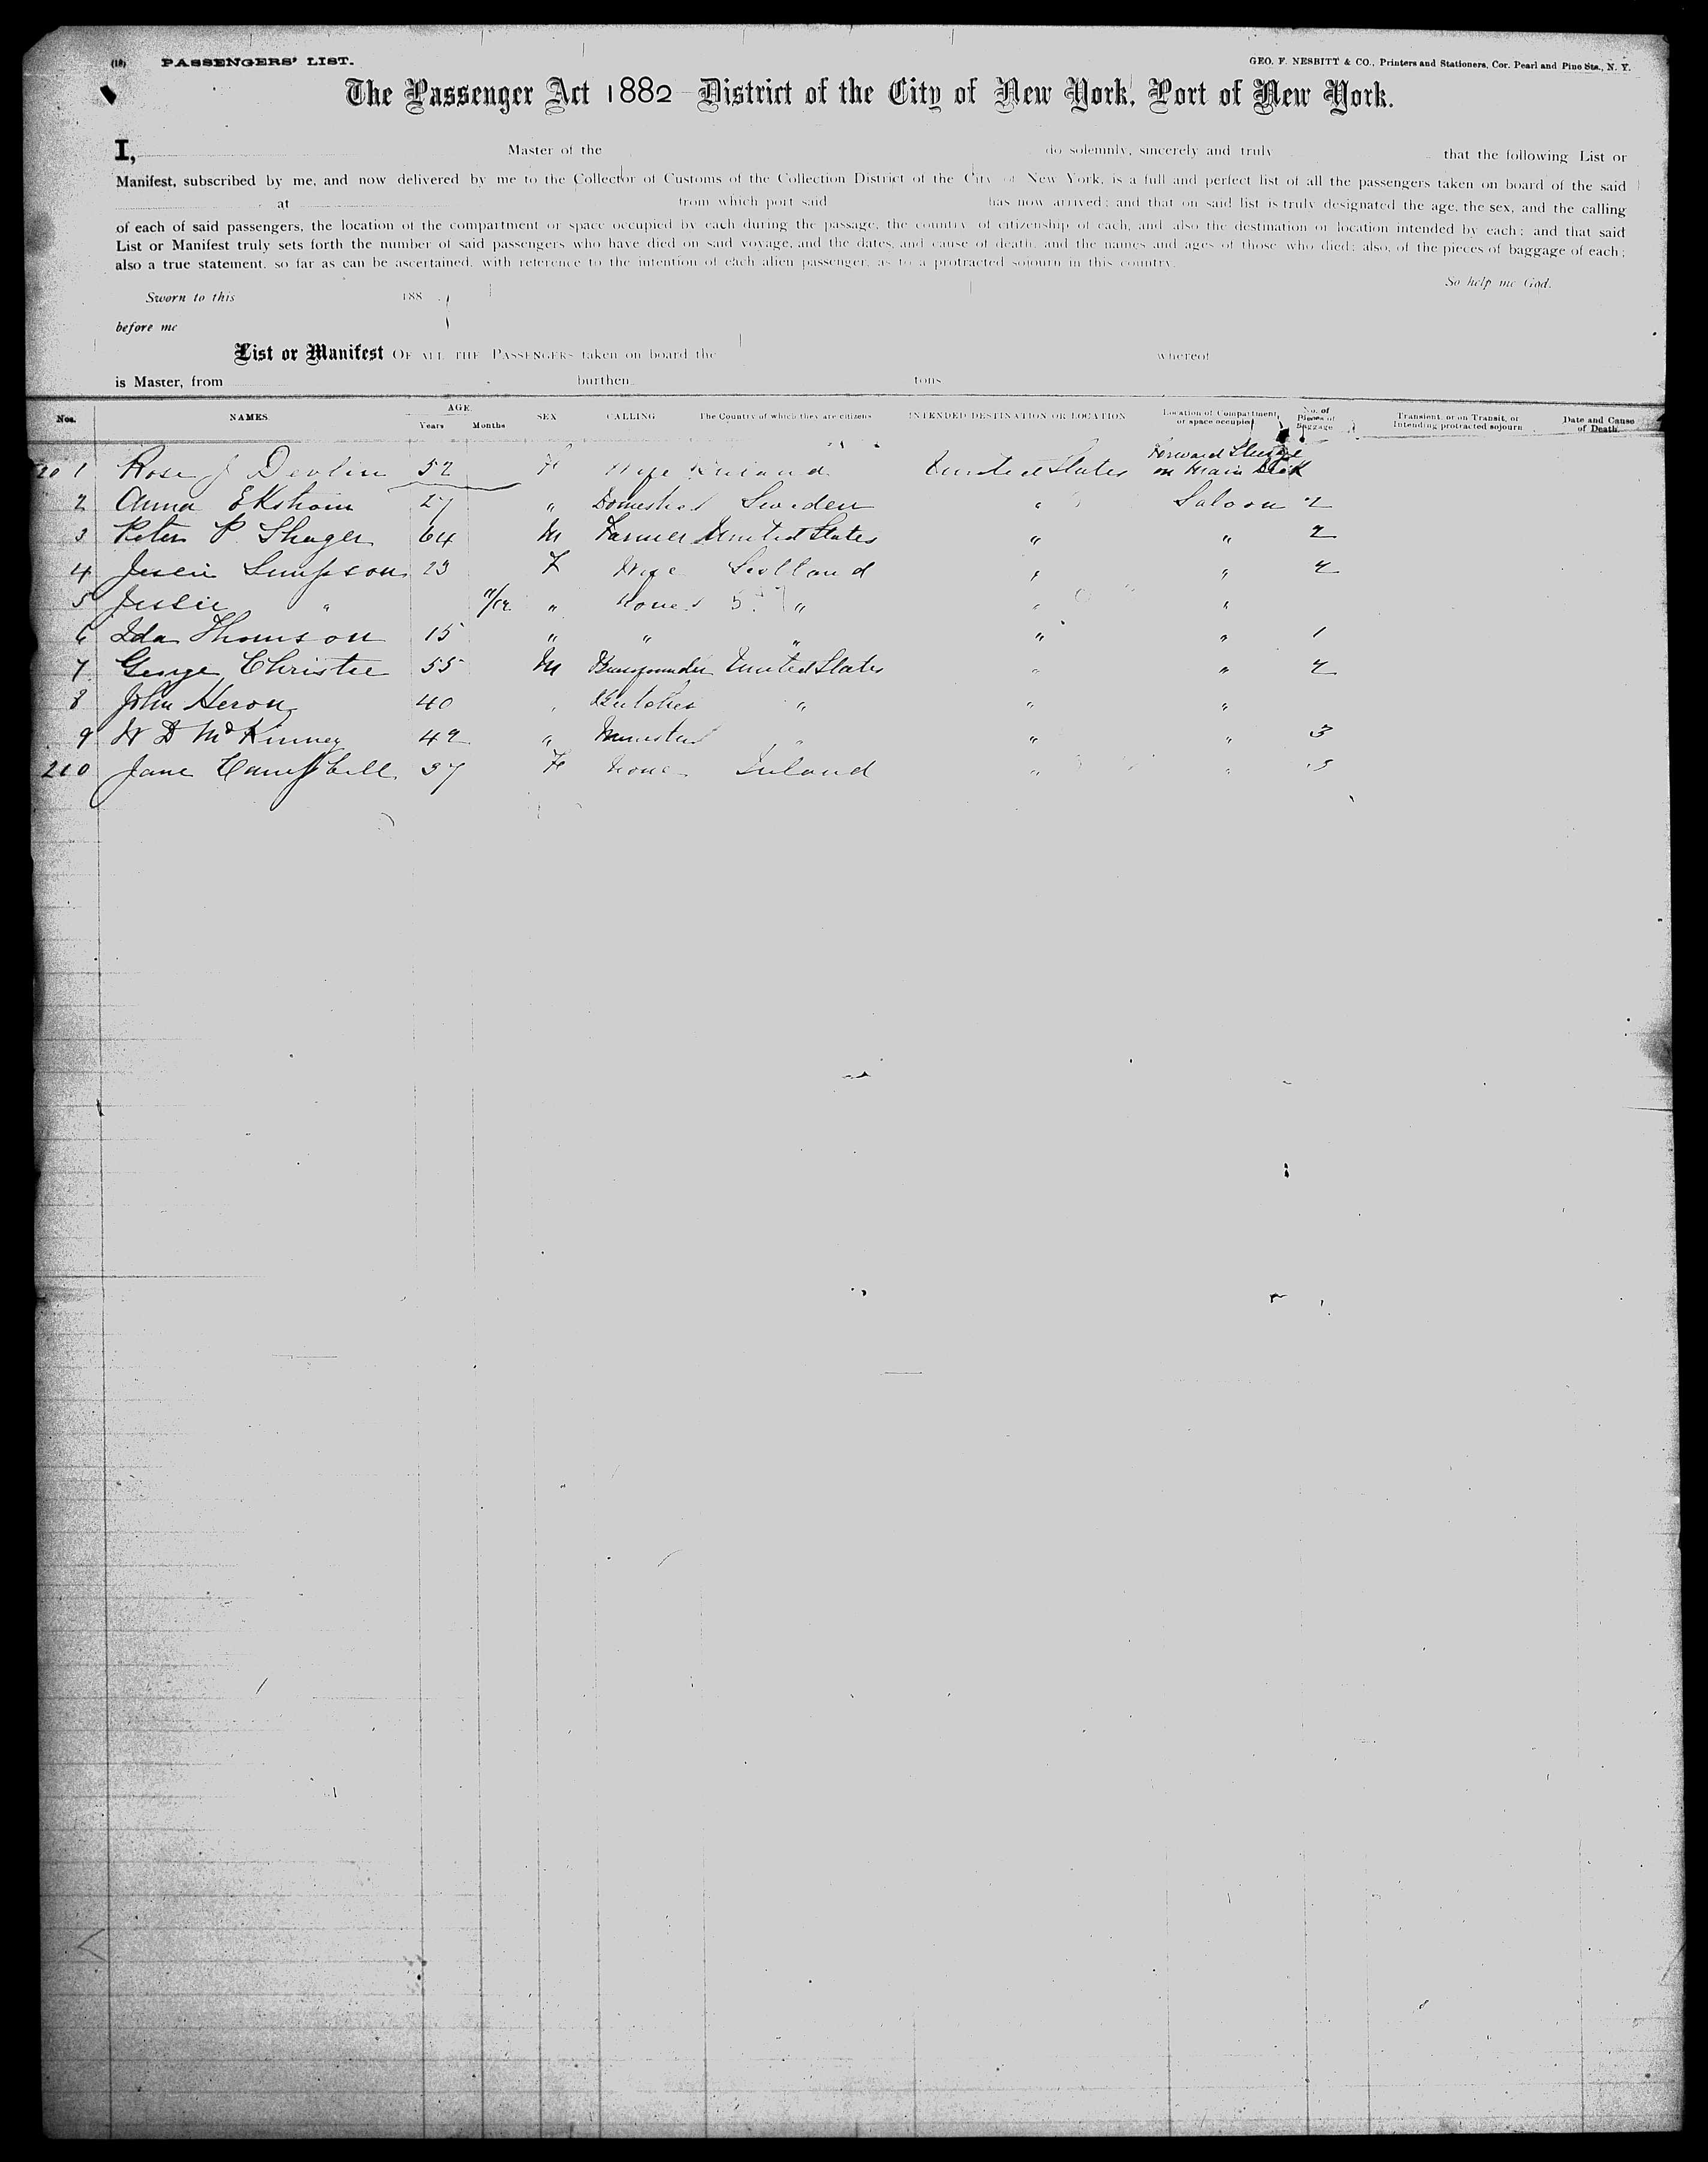 (18) PASSENGERS' LIST.
GEO. F. NESBITT & CO., Printers and Stationers, Cor. Pearl and Pine Sts., N. Y.
The Passenger Act 1882 District of the City of New York, Port of New York.
I, Master of the do solemnly, sincerely and truly that the following List or
Manifest, subscribed by me, and now delivered by me to the Collector of Customs of the Collection District of the City of New York, is a full and perfect list of all the passengers taken on board of the said
at from which port said has now arrived; and that on said list is truly designated the age, the sex, and the calling
of each of said passengers, the location of the compartment or space occupied by each during the passage, the country of citizenship of each, and also the destination or location intended by each; and that said
List or Manifest truly sets forth the number of said passengers who have died on said voyage, and the dates, and cause of death, and the names and ages of those who died; also, of the pieces of baggage of each;
also a true statement, so far as can be ascertained, with reference to the intention of each alien passenger, as to a protracted sojourn in this country.
So help me God.
Sworn to this 188
before me
List or Manifest OF ALL THE PASSENGERS taken on board the whereof
is Master, from burthen tons
Nos. NAMES AGE Years Months SEX CALLING The Country of which they are citizens INTENDED DESTINATION OR LOCATION Location of Compartment or space occupied No. of Pieces of Baggage Transient, or on Transit, or Intending protracted sojourn Date and Cause of Death
20 1 Rose J Devlin 52 F Wife Ireland United States Forward Steerage on Main Deck
2 Anna Ekstrom 27 " Domestic Sweden " Saloon 2
3 Peter P. Shager 64 M Farmer United States " " 2
4 Jessie Simpson 23 F Wife Scotland " " 2
5 Jessie " " None " " "
6 Ida Thomson 15 " " " " " 1
7 George Christie 55 M United States " " 2
8 John Heron 40 " Butcher " " "
9 W D McKinney 42 " Minister " " " 3
210 Jane Campbell 37 F None Ireland " " 3